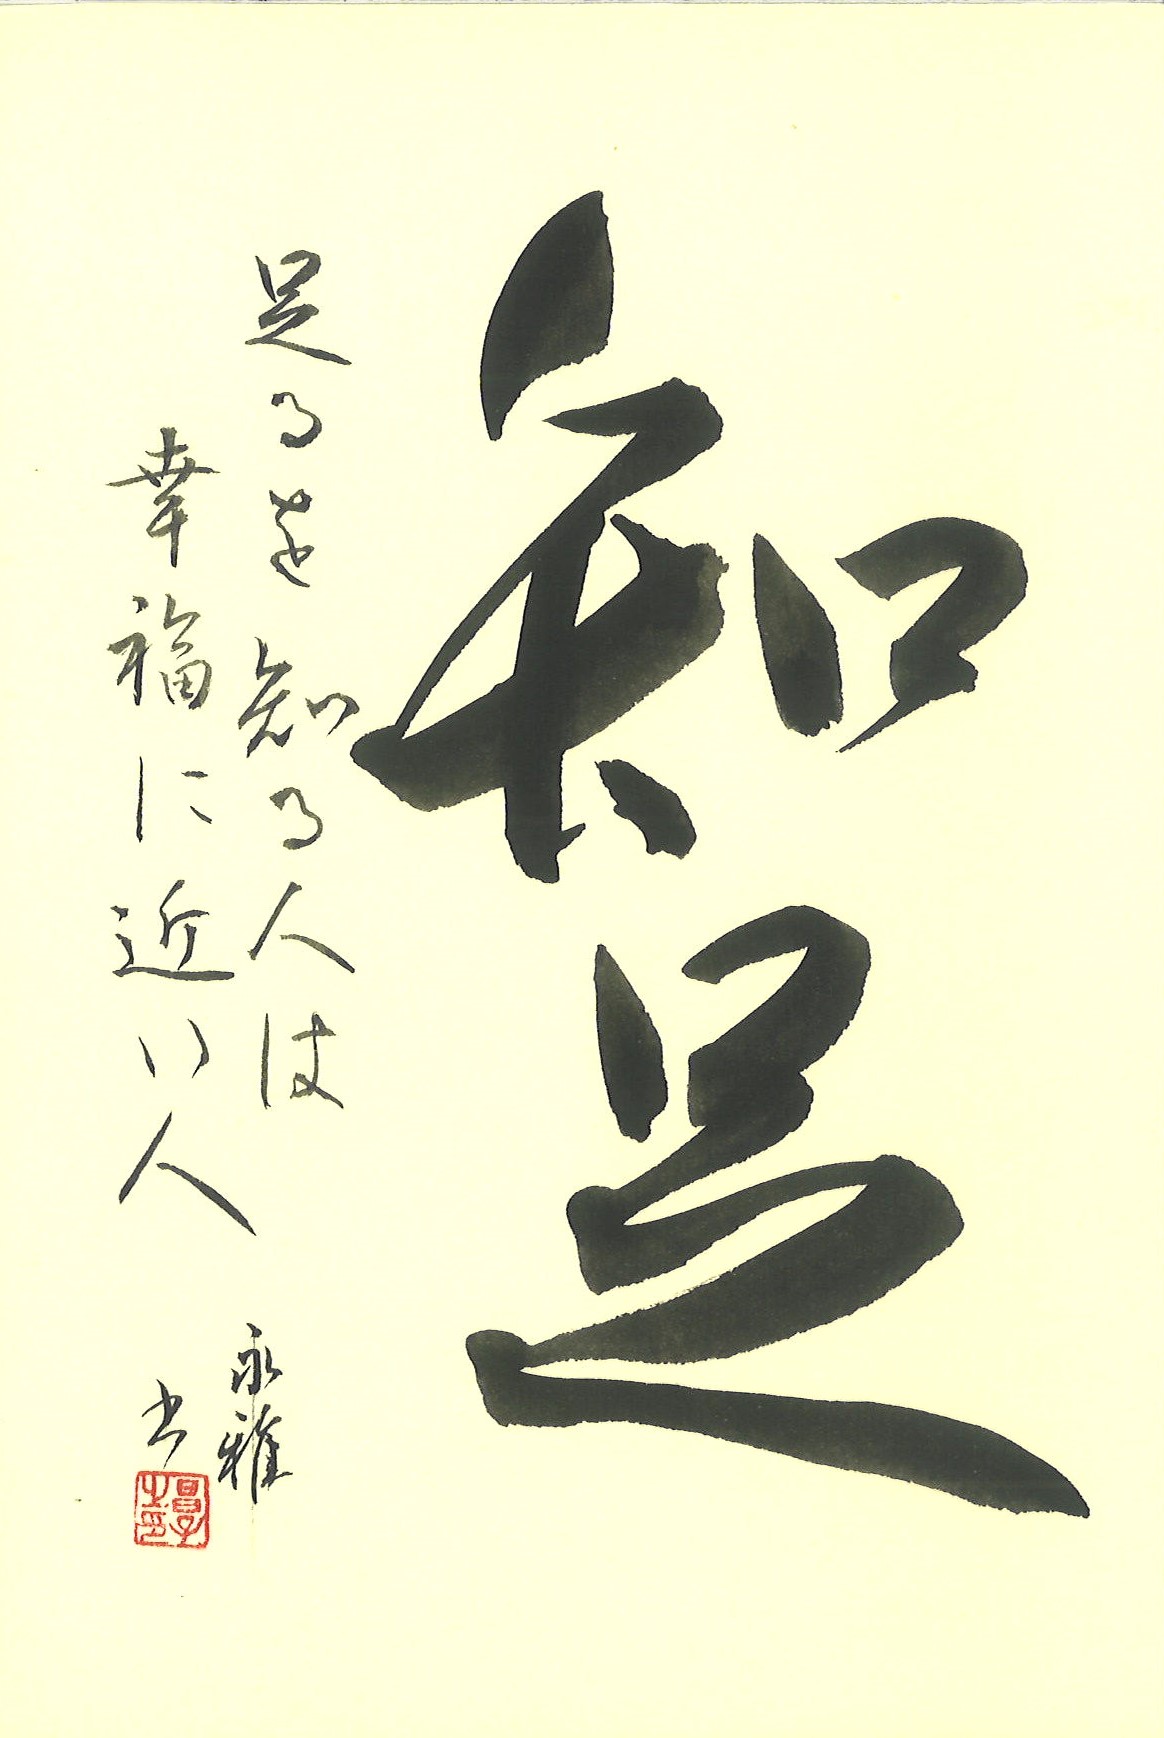 知足
足るを知る人は
幸福に近い人
永雅
書